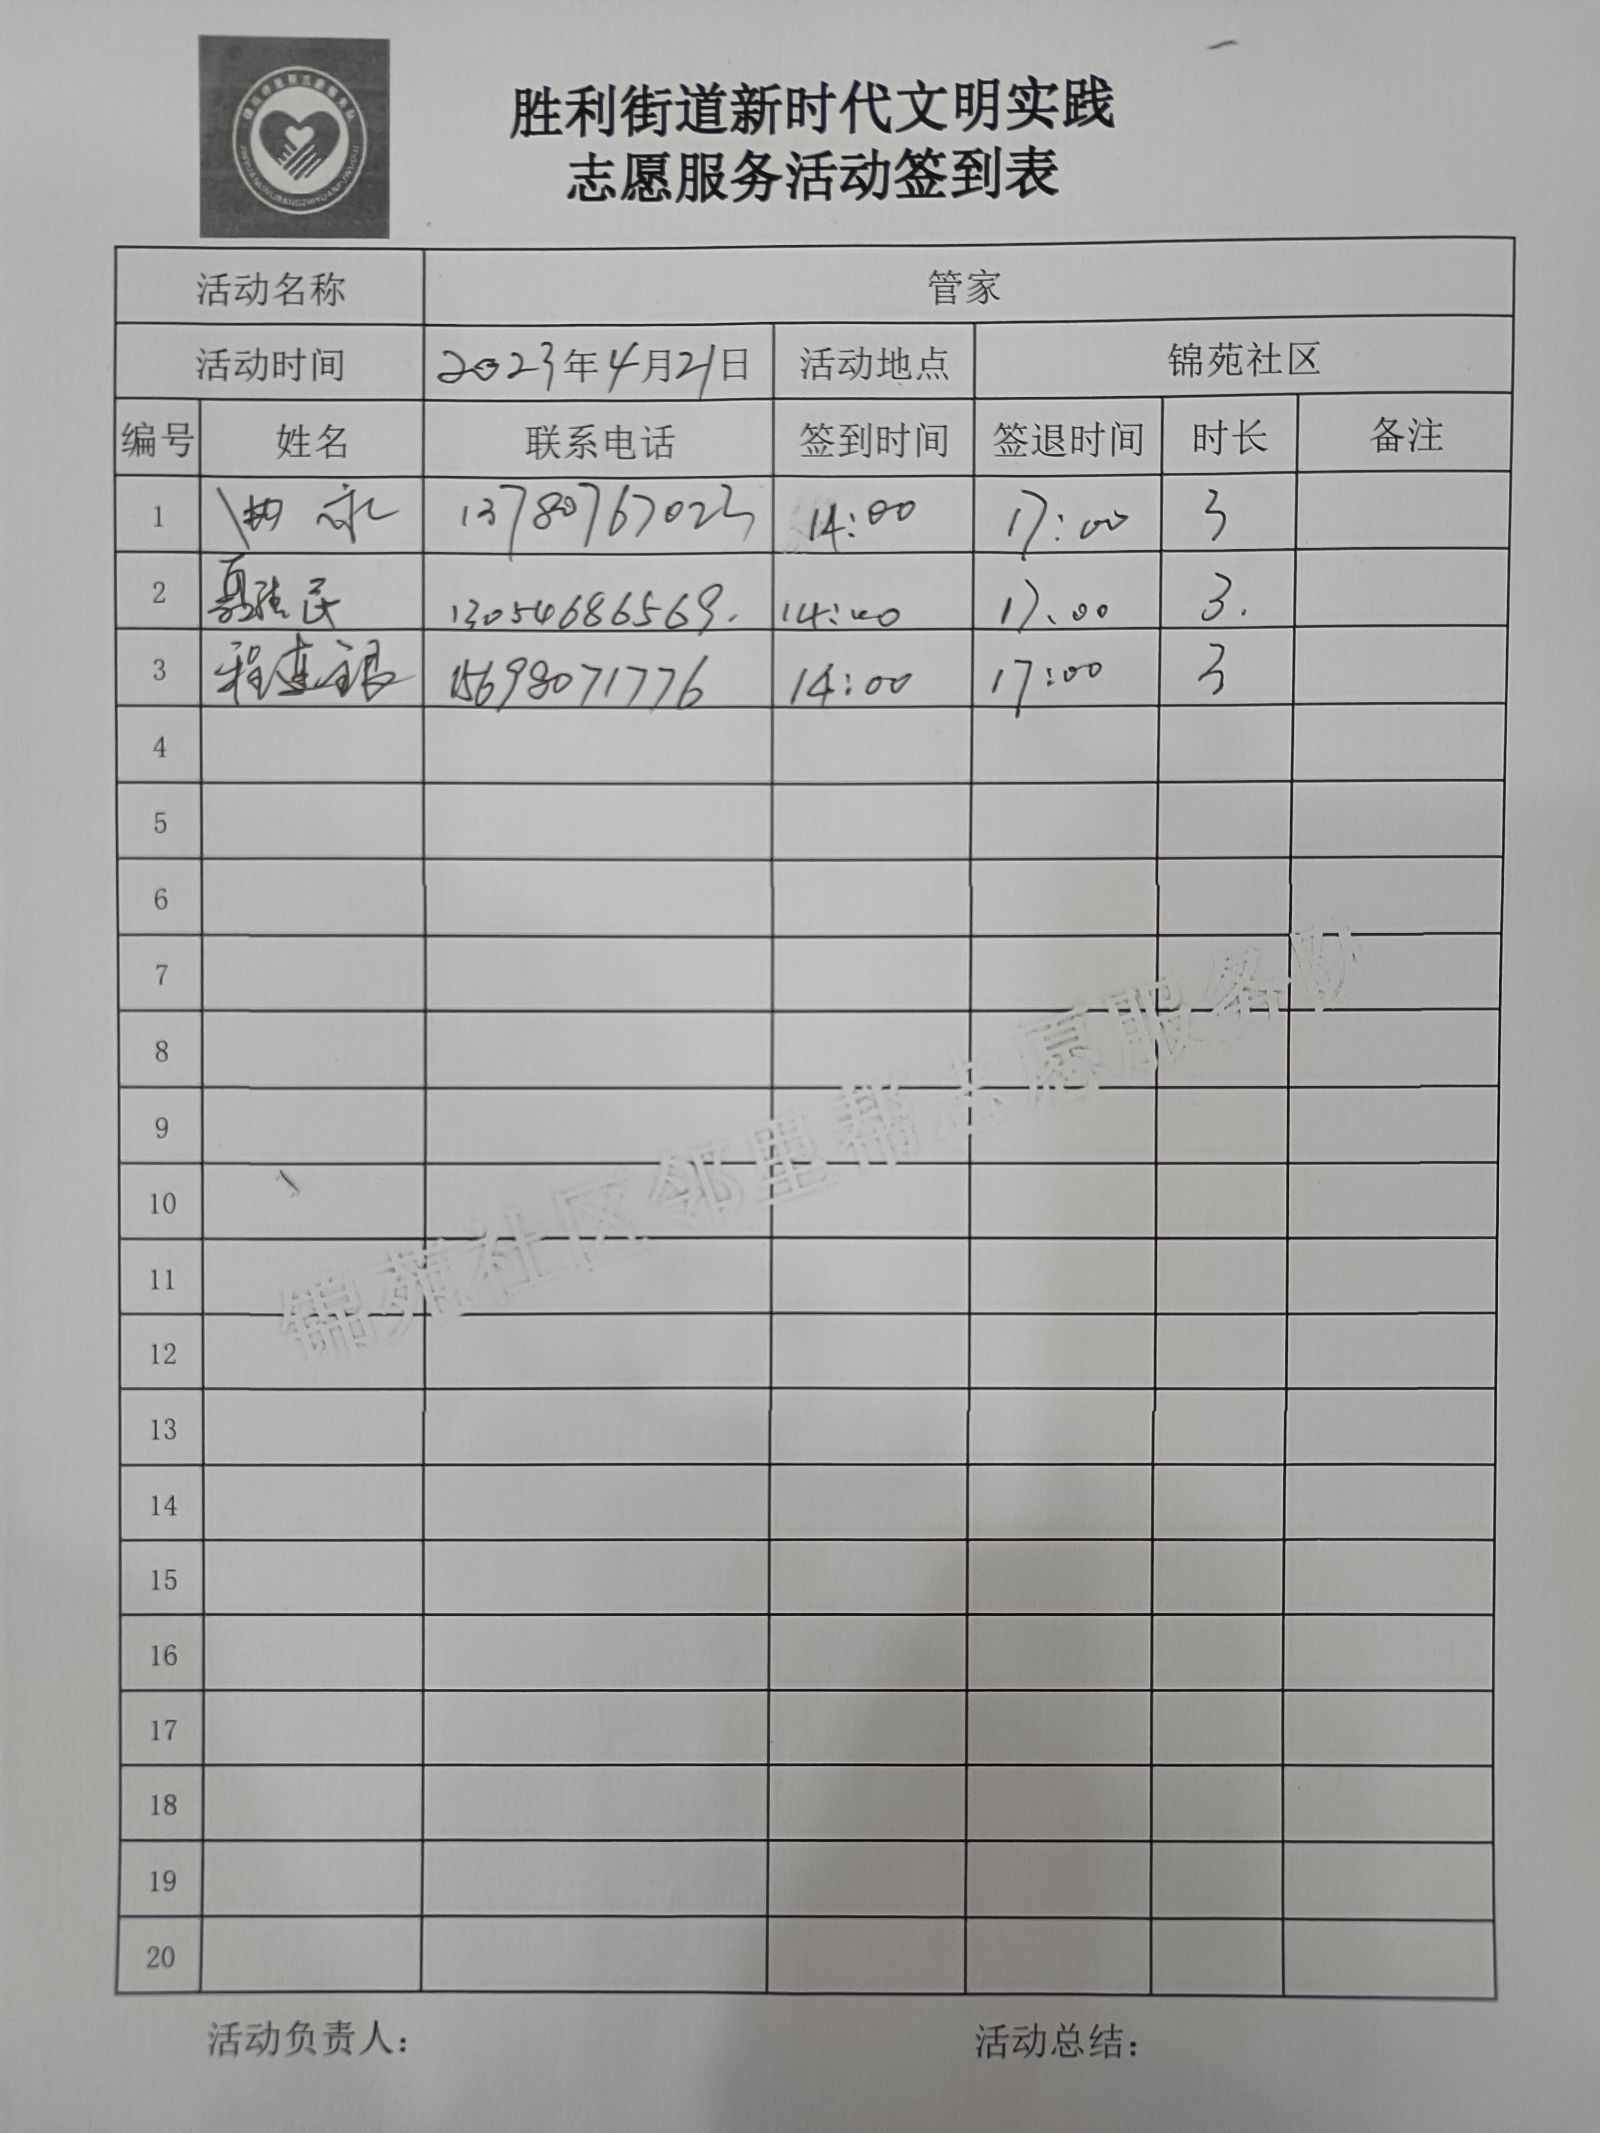 胜利街道新时代文明实践
志愿服务活动签到表
活动名称 管家
活动时间 2023年4月21日 活动地点 锦苑社区
编号 姓名 联系电话 签到时间 签退时间 时长 备注
1 13780767023 14:00 17:00 3
2 民 13054686569. 14:00 17:00 3.
3 程连银 15698071776 14:00 17:00 3
4
5
6
7
8
9
10
11
12
13
14
15
16
17
18
19
20
锦苑社区邻里帮志愿服务队
活动负责人： 活动总结：